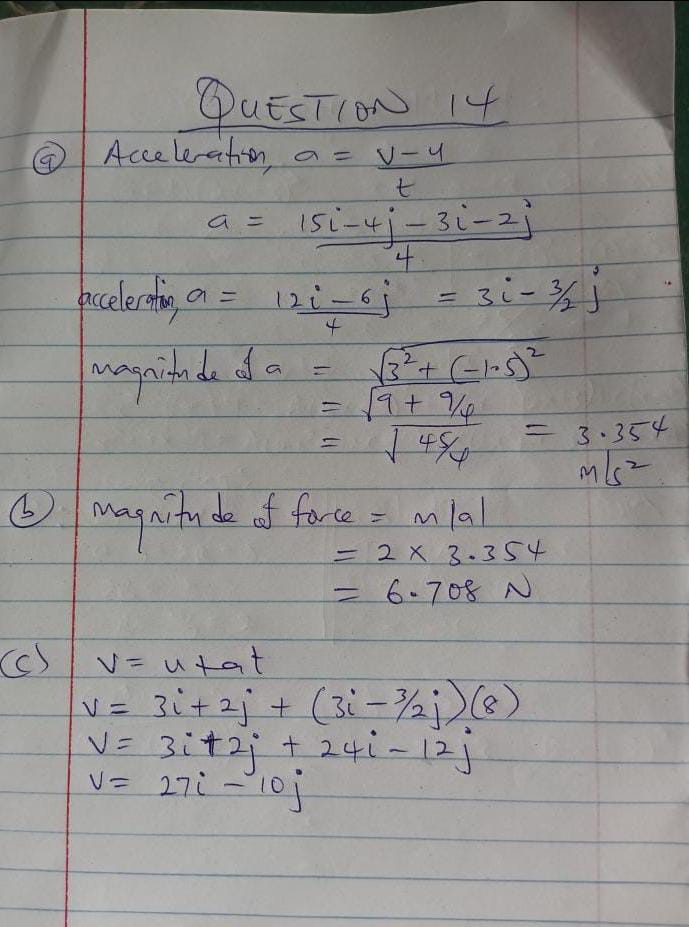 QUESTION 14
(a) Acceleration, a = v-u
t
a = 15i-4j-3i-2j
4
acceleration, a = 12i-6j = 3i-3/2j
4
magnitude of a = √3²+(-1.5)²
= √9+9/4
= √45/4 = 3.354
m/s²
(b) magnitude of force = m|a|
= 2×3.354
= 6.708 N
(c) v = u+at
v = 3i+2j+(3i-3/2j)(8)
v = 3i+2j+24i-12j
v = 27i-10j